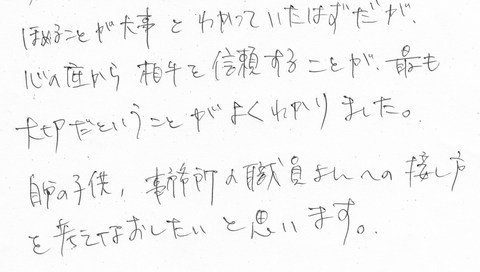 ほめることが大事とわかっていたはずだが、
心の底から相手を信頼することが、最も
大切だということがよくわかりました。
自分の子供、事務所の職員さんへの接し方
を考えなおしたいと思います。